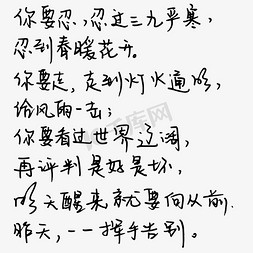 你要忍,忍过三九严寒,
忍到春暖花开。
你要走,走到灯火通明,
给风雨一击;
你要看过世界辽阔,
再评判是好是坏,
明天醒来就要向从前.
昨天,一一挥手告别。